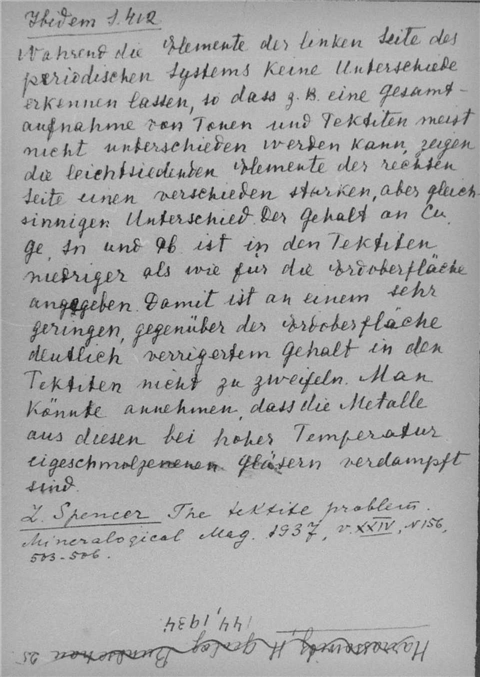 Ibidem S. 412
Wahrend die Elemente der linken Seite des
periodischen Systems keine Unterschiede
erkennen lassen, so dass z. B. eine Gesamt-
aufnahme von Tonen und Tektiten meist
nicht unterschieden werden kann, zeigen
die leichtsiedenden Elemente der rechten
Seite einen verschieden starken, aber gleich-
sinnigen Unterschied. Der Gehalt an Cu,
Ge, Sn und Pb ist in den Tektiten
niedriger als wie für die Erdoberfläche
angegeben. Damit ist an einem sehr
geringen, gegenüber der Erdoberfläche
deutlich verrigertem Gehalt in den
Tektiten nicht zu zweifeln. Man
könnte annehmen, dass die Metalle
aus diesen bei hoher Temperatur
eigeschmolzenenen Gläsern verdampft
sind.
L. Spencer The tektite problem.
Mineralogical Mag. 1937, v. XXIV, N 156,
503-506.
144, 1934
H. geolog. Rundschau 25